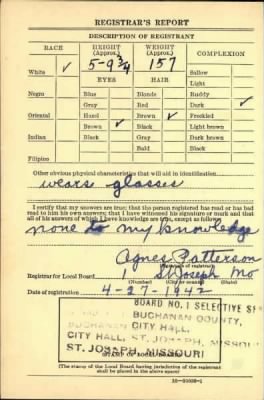 REGISTRAR'S REPORT
DESCRIPTION OF REGISTRANT
RACE HEIGHT (Approx.) WEIGHT (Approx.) COMPLEXION
5-9 3/4 157
White ✓ EYES HAIR Sallow
Light
Negro Blue Blonde Ruddy
Gray Red Dark ✓
Oriental Hazel Brown ✓ Freckled
Brown ✓ Black Light brown
Indian Black Gray Dark brown
Bald Black
Filipino
Other obvious physical characteristics that will aid in identification
wears glasses
I certify that my answers are true; that the person registered has read or has had
read to him his own answers; that I have witnessed his signature or mark and that
all of his answers of which I have knowledge are true, except as follows:
none to my knowledge
Agnes Patterson
Registrar for Local Board 1 St Joseph Mo
(Number) (City or county) (State)
Date of registration 4-27-1942
BOARD NO. 1 SELECTIVE
BUCHANAN COUNTY,
BUCHANAN CITY HALL,
CITY HALL, ST. JOSEPH, MISSOURI
ST. JOSEPH, MISSOURI
(STAMP OF LOCAL BOARD)
(The stamp of the Local Board having jurisdiction of the registrant
shall be placed in the above space)